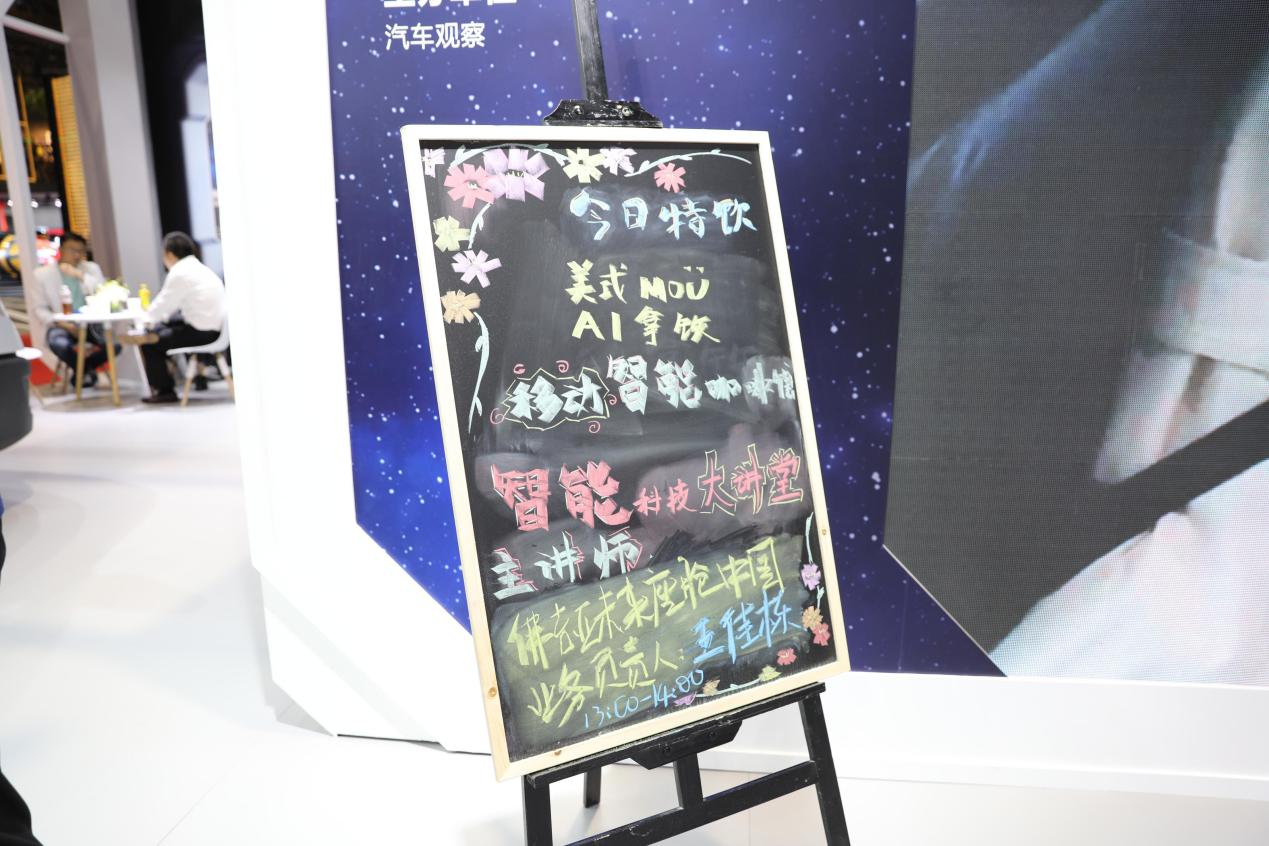 汽车观察
今日特饮
美式 MOÜ
AI拿饮
移动智能咖啡馆
智能科技大讲堂
主讲师
佛吉亚未来座舱中国
业务负责人:王佳栋
13:00-14:00